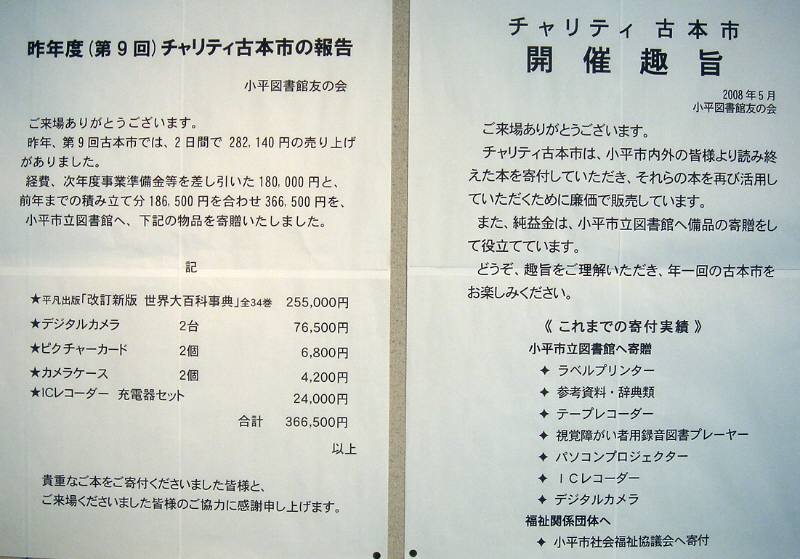 昨年度(第9回)チャリティ古本市の報告
小平図書館友の会
ご来場ありがとうございます。
昨年、第9回古本市では、2日間で 282,140円の売り上げ
がありました。
経費、次年度事業準備金等を差し引いた180,000円と、
前年までの積み立て分186,500円を合わせ366,500円を、
小平市立図書館へ、下記の物品を寄贈いたしました。
記
★平凡出版「改訂新版 世界大百科事典」全34巻 255,000円
★デジタルカメラ 2台 76,500円
★ピクチャーカード 2個 6,800円
★カメラケース 2個 4,200円
★ICレコーダー 充電器セット 24,000円
合計 366,500円
以上
貴重なご本をご寄付くださいました皆様と、
ご来場くださいました皆様のご協力に感謝申し上げます。
チャリティ 古本市
開催趣旨
2008年5月
小平図書館友の会
ご来場ありがとうございます。
チャリティ古本市は、小平市内外の皆様より読み終
えた本を寄付していただき、それらの本を再び活用し
ていただくために廉価で販売しています。
また、純益金は、小平市立図書館へ備品の寄贈をし
て役立てています。
どうぞ、趣旨をご理解いただき、年一回の古本市を
お楽しみください。
《 これまでの寄付実績 》
小平市立図書館へ寄贈
✦ ラベルプリンター
✦ 参考資料・辞典類
✦ テープレコーダー
✦ 視覚障がい者用録音図書プレーヤー
✦ パソコンプロジェクター
✦ ICレコーダー
✦ デジタルカメラ
福祉関係団体へ
✦ 小平市社会福祉協議会へ寄付